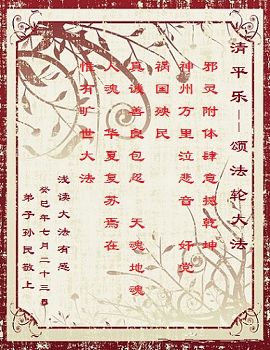 清平乐——颂法轮大法
邪灵附体肆意撼乾坤
神州万里泣悲音 奸党
祸国殃民
真诚善良包忍 天魂地魂
人魂华夏复苏焉在
惟有旷世大法
浅读大法有感
癸巳年七月二十三日
弟子孙民敬上